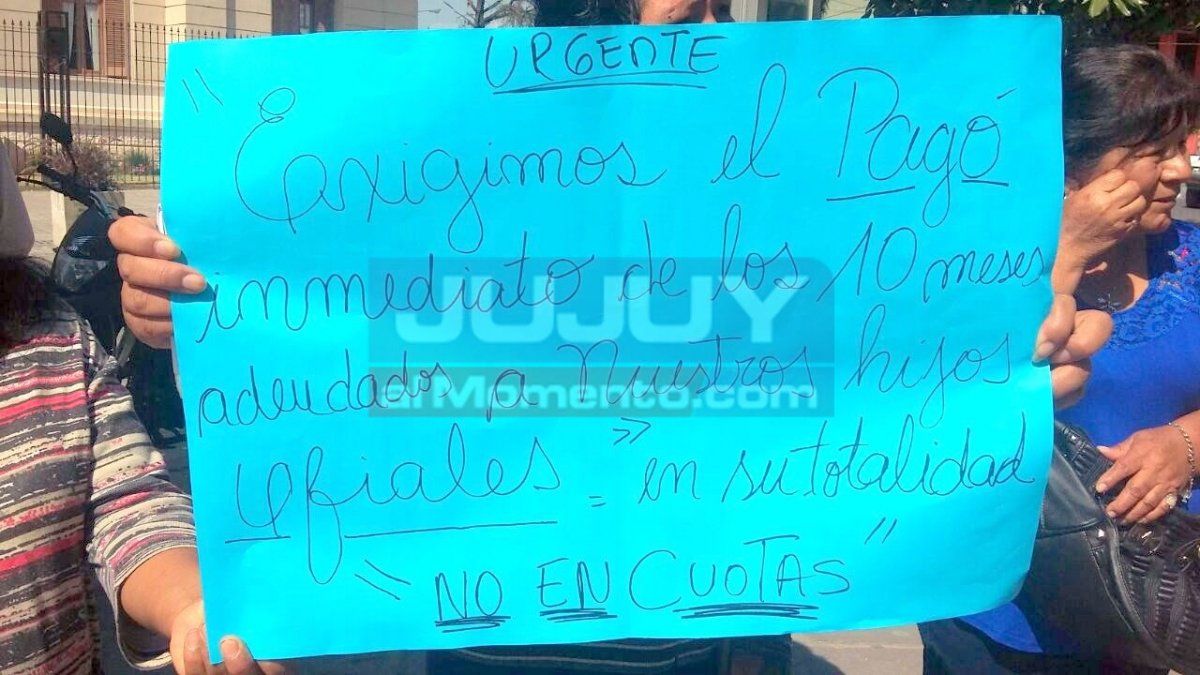 URGENTE
" Exigimos el Pagó
inmediato de los 10 meses
adeudados a nuestros hijos
Ofiales " = en su totalidad
" NO EN CUOTAS "
JUJUY
al Momento.com